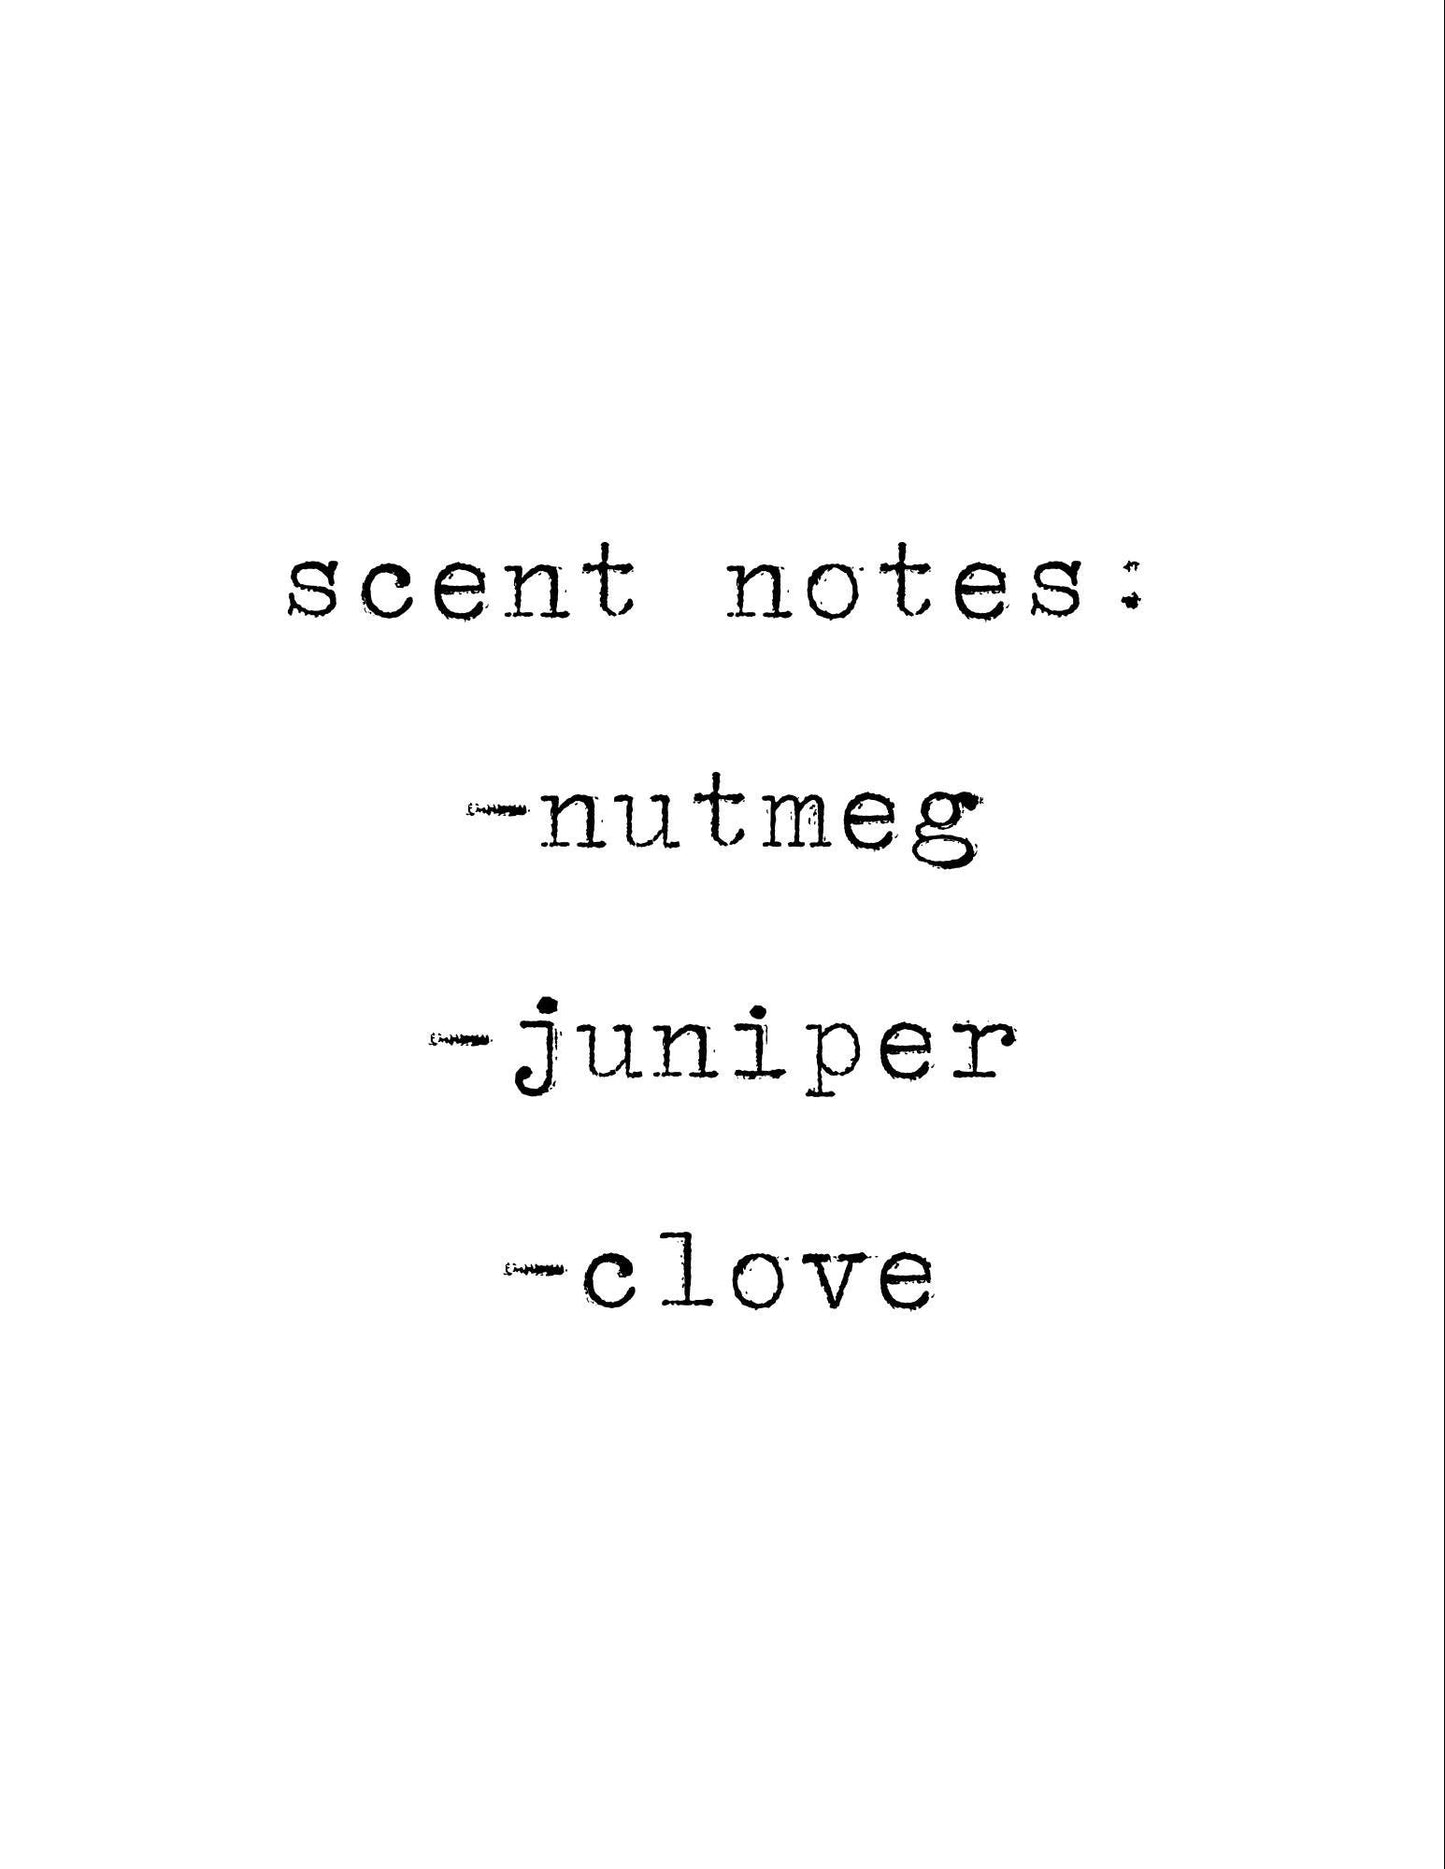 scent notes:
-nutmeg
-juniper
-clove